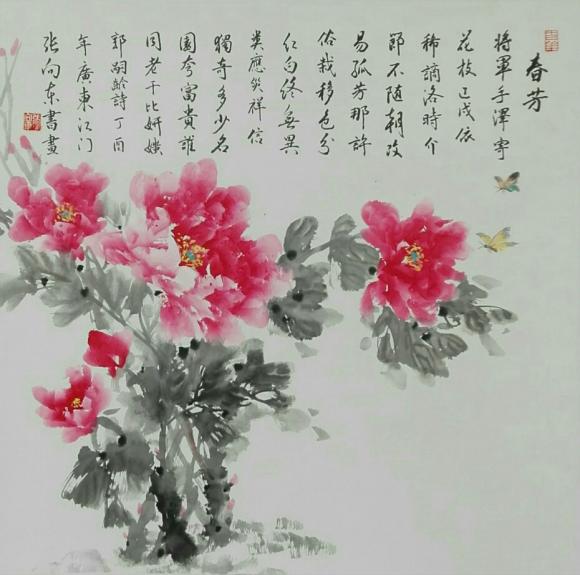 春芳
將軍手澤寄
花枝已戍依
稀謫洛時介
節不隨朝改
易孤芳那許
俗栽移色分
紅白終無異
类應災祥信
獨奇多少名
園夸富貴誰
同老干比妍媸
郭嗣齡詩丁酉
年廣東江门
张向东書畫